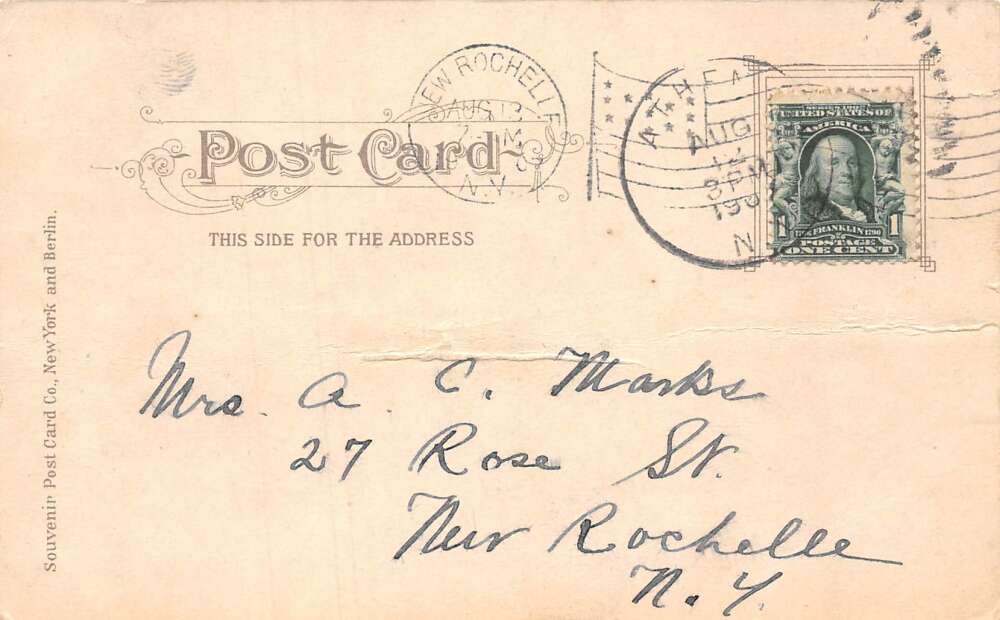 NEW ROCHELLE
AUG 13
N.Y.
ATHE
AUG
12
8 PM
190
N.Y.
UNITED STATES OF
AMERICA
1706 FRANKLIN 1790
POSTAGE
1 ONE CENT 1
Post Card
THIS SIDE FOR THE ADDRESS
Souvenir Post Card Co., New York and Berlin.
Mrs. A. C. Marks
27 Rose St.
New Rochelle
N.Y.